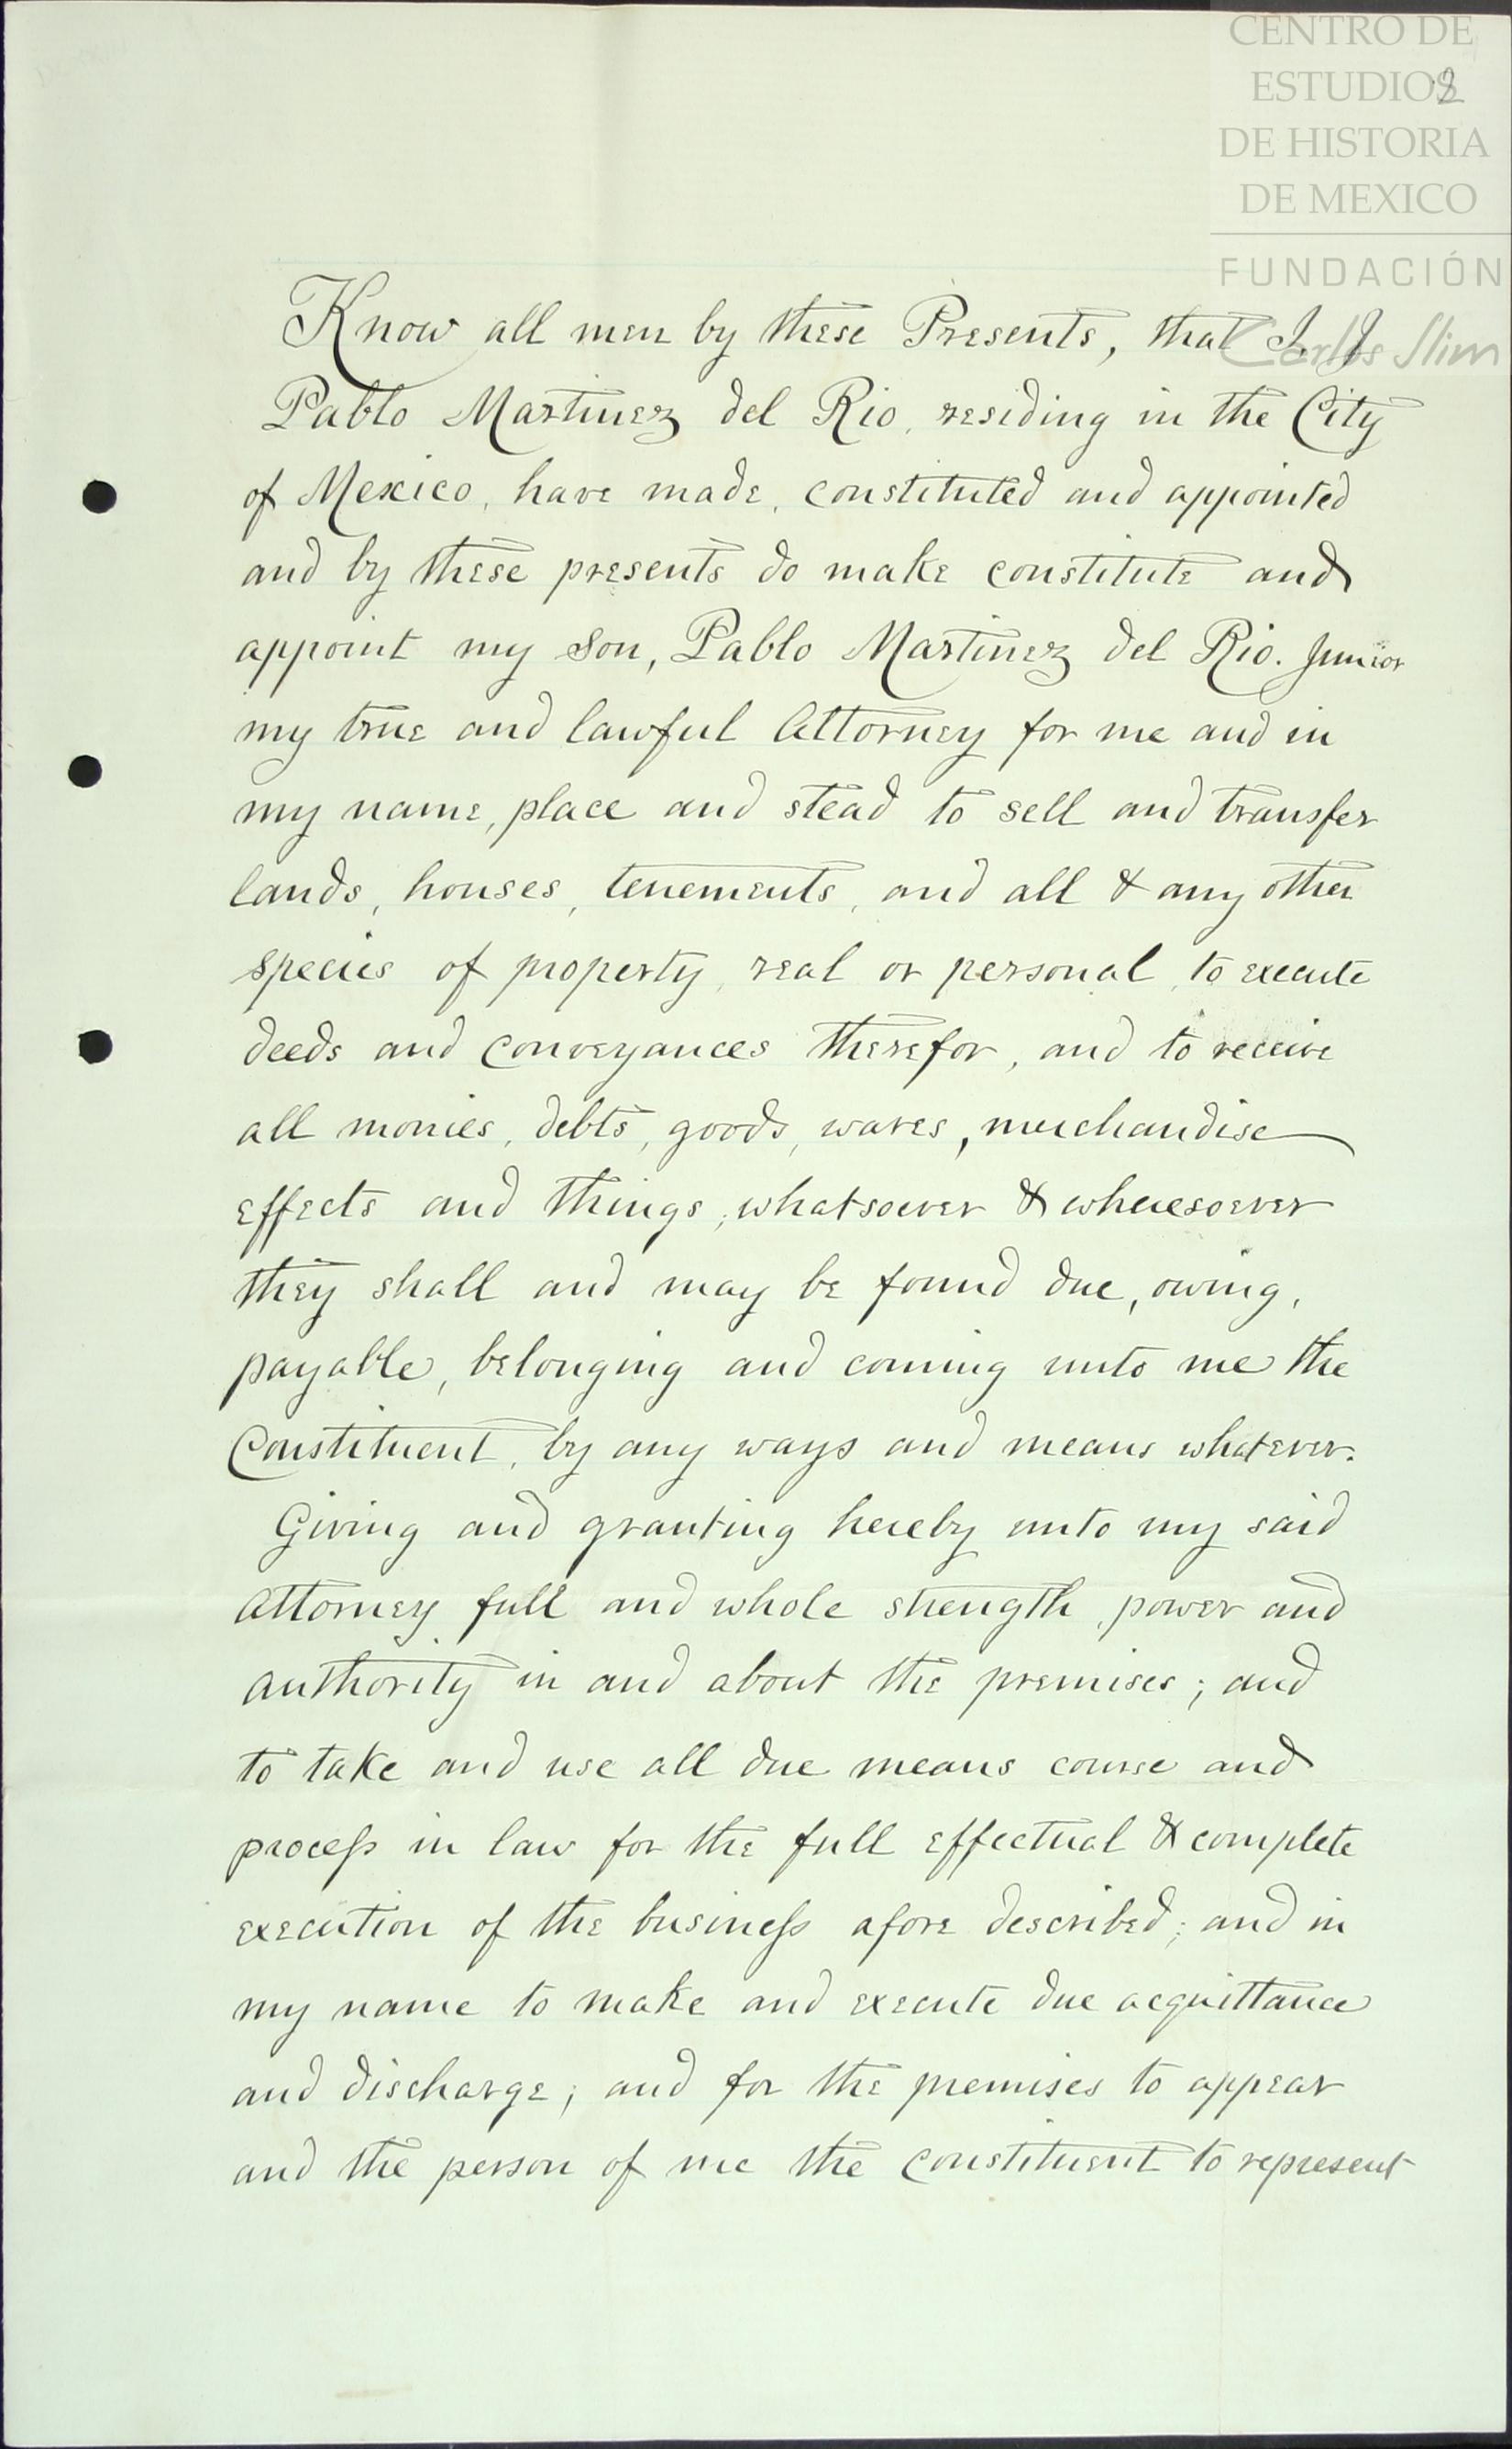 CENTRO DE
ESTUDIOS
2
DE HISTORIA
DE MEXICO
FUNDACIÓN
Carlos Slim
Know all men by these Presents, that I, J.
Pablo Martinez del Rio, residing in the City
of Mexico, have made, constituted and appointed
and by these presents do make constitute and
appoint my son, Pablo Martinez del Rio. Junior
my true and lawful Attorney for me and in
my name, place and stead to sell and transfer
lands, houses, tenements, and all & any other
species of property, real or personal, to execute
deeds and conveyances therefor, and to receive
all monies, debts, goods, wares, merchandise
effects and things, whatsoever & wheresoever
they shall and may be found due, owing,
payable, belonging and coming unto me the
Constituent, by any ways and means whatever.
Giving and granting hereby unto my said
Attorney full and whole strength, power and
authority in and about the premises; and
to take and use all due means course and
process in law for the full effectual & complete
execution of the business afore described; and in
my name to make and execute due acquittance
and discharge; and for the premises to appear
and the person of me the constituent to represent